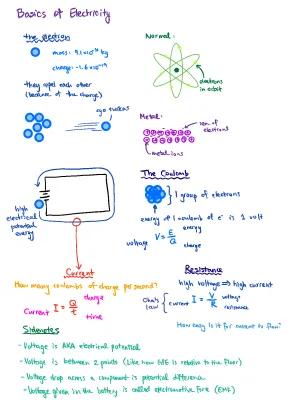 Basics of Electricity
the electron
mass: 9.1×10⁻³¹ kg
charge: -1.6×10⁻¹⁹
they repel each other
(because of the charge)
Normal:
electrons
in orbit
Metal:
sea of
electrons
metal ions
high
electrical
potential
energy
The Coulomb
1 group of electrons
energy of 1 coulomb of e⁻ is 1 volt
voltage V = E/Q energy
charge
Current
How many coulombs of charge per second?
Current I = Q/t charge
time
Resistance
high voltage ⇒ high current
Ohm's
Law
current I = V/R voltage
resistance
How easy is it for current to flow?
Sidenotes
- Voltage is AKA electrical potential
- Voltage is between 2 points (like how GPE is relative to the floor)
- Voltage drop across a component is potential difference
- Voltage given in the battery is called electromotive force (EMF)